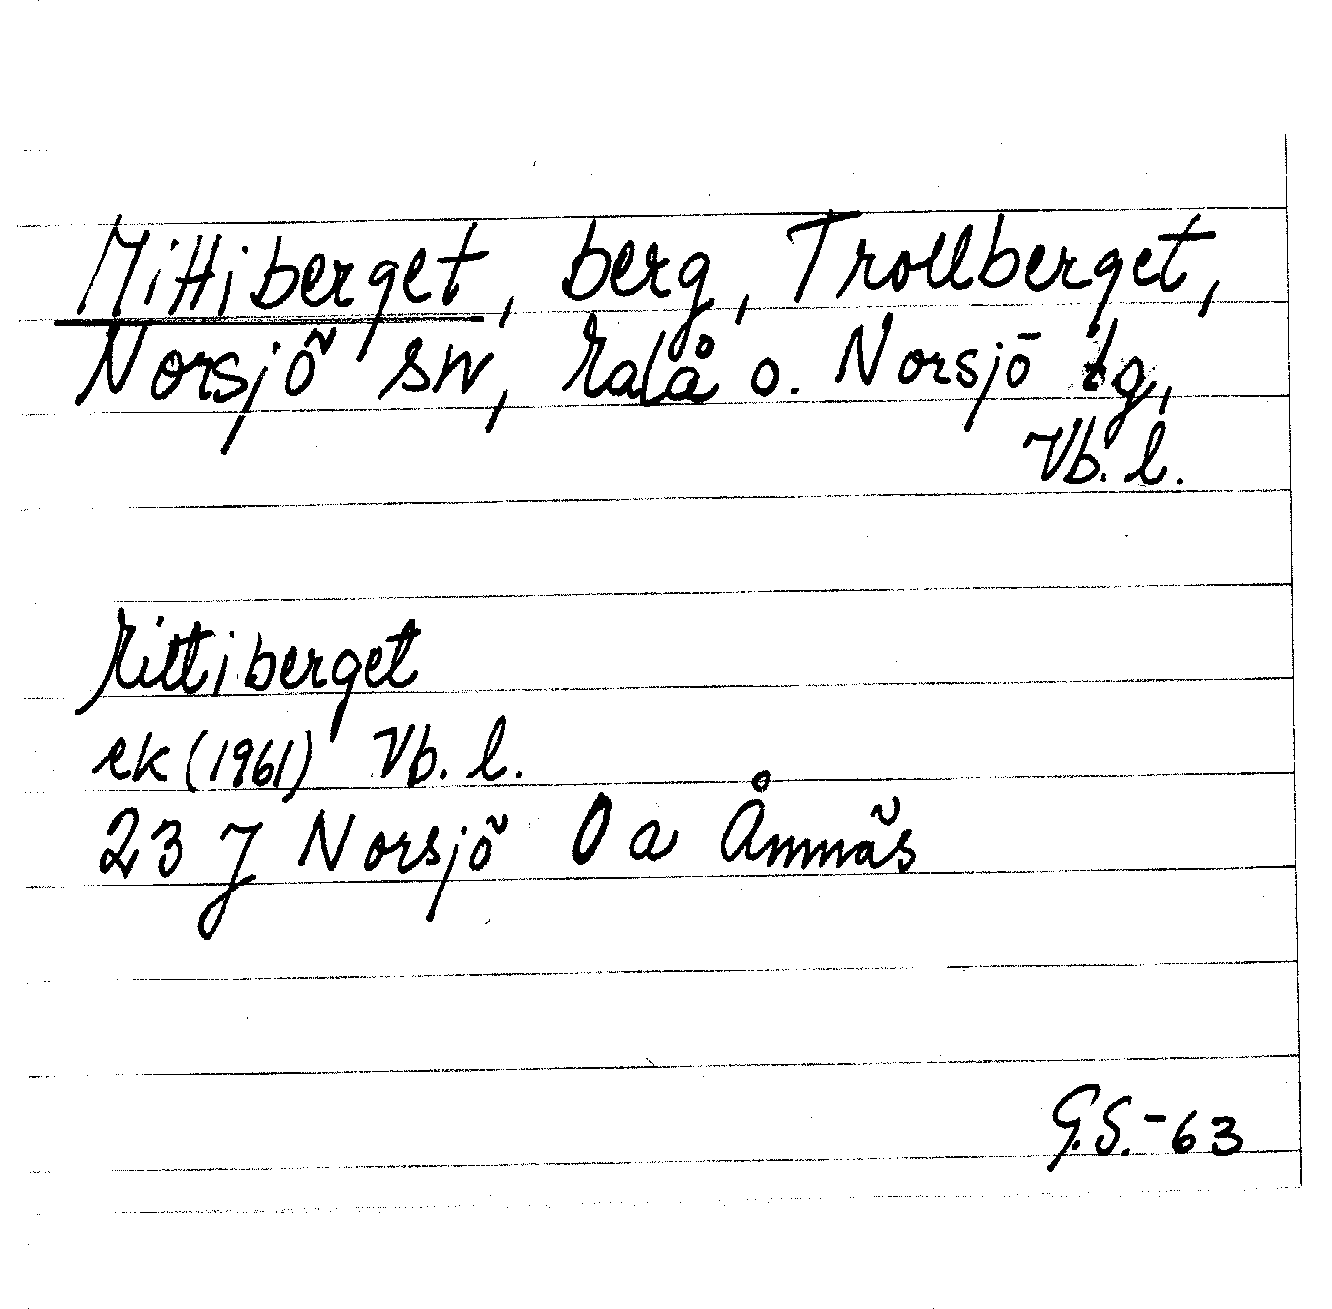 Mittiberget, berg, Trollberget,
Norsjö sn, Malå o. Norsjö tg,
Vb. l.
Mittiberget
ek (1961) Vb. l.
23 J Norsjö 0 a Åmnäs
G.S.-63